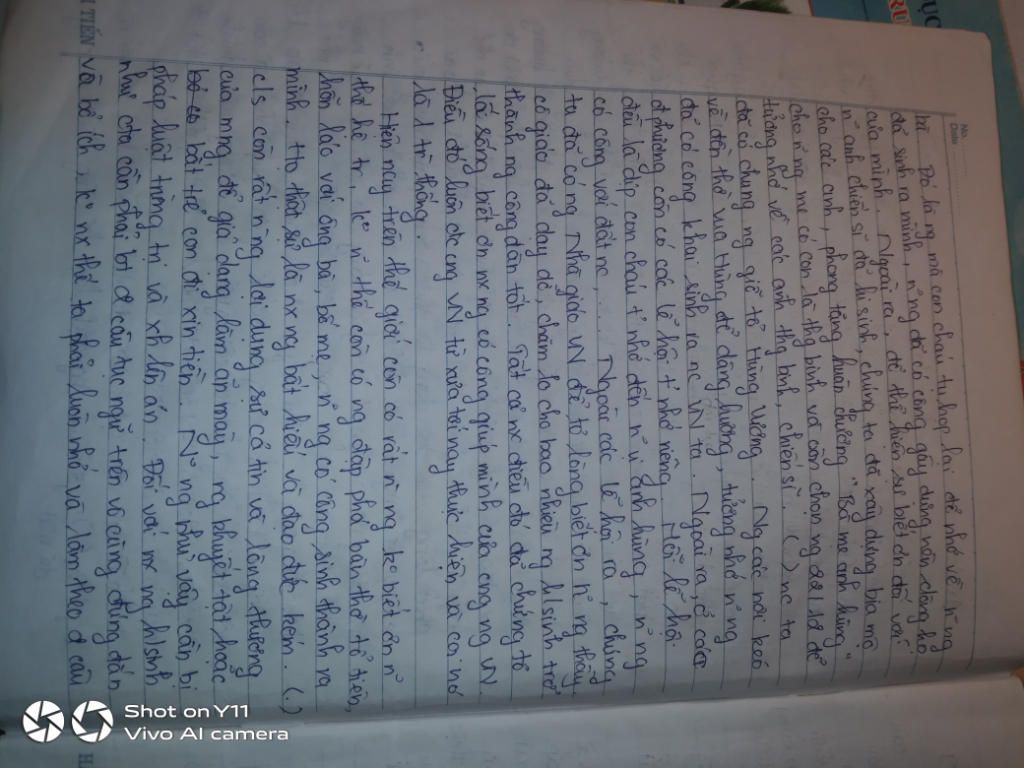 No.
Date
bè. Đó là ng mà con cháu tụ họp lại để nhớ về n~ ng
đã sinh ra mình, n~ ng đó có công gây dựng nên dòng họ
của mình. Ngoài ra, để thể hiện sự biết ơn đối với
n~ anh chiến sĩ đã hi sinh, chúng ta đã xây dựng bia mộ
cho các anh, phong tặng huân chương "Bà mẹ anh hùng"
cho n~ ng mẹ có con là thg binh và còn chọn ng 22 12 để
tưởng nhớ về các anh thg binh, chiến sĩ. ( ) nc ta
đã có chung ng giỗ tổ Hùng Vương. Ng các nơi kéo
về đền thờ vua Hùng để dâng hương, tưởng nhớ n~ ng
đã có công khai sinh ra nc VN ta. Ngoài ra, ở các
địa phương còn có các lễ hội t' nhớ riêng. Mỗi lễ hội
đều là dịp con cháu t' nhớ đến n~ vị anh hùng, n~ ng
có công với đất nc,... Ngoài các lễ hội ra, chúng
ta đã có ng Nhà giáo VN để tỏ lòng biết ơn n~ ng thầy,
cô giáo đã dạy dỗ, chăm lo cho bao nhiêu ng h/sinh trở
thành ng công dân tốt. Tất cả nx điều đó đã chứng tỏ
lẽ sống biết ơn nx ng có công giúp mình của cng ng VN.
Điều đó luôn đc cng VN từ xưa tới nay thực hiện và coi nó
là 1 tr thống.
Hiện nay trên thế giới còn có rất n` ng ko biết ơn n~
thế hệ tr, ko n~ thế còn có ng đập phá bàn thờ tổ tiên,
hỗn láo với ông bà, bố mẹ, n~ ng có công sinh thành ra
mình. Họ thật sự là nx ng bất hiếu và đạo đức kém. (.)
c/s còn rất n` ng lợi dụng sự cả tin và lòng thương
của mng để giả dạng làm ăn mày, ng khuyết tật hoặc
bắt trẻ con đi xin tiền. N~ ng như vậy cần bị
pháp luật trừng trị và xh lên án. Đối với nx ng h/sinh
như cta cần phải bt đ câu tục ngữ trên vô cùng đúng đắn
và bổ ích, ko nx thế ta phải luôn nhớ và làm theo đ câu
TIẾN
Shot on Y11
Vivo AI camera